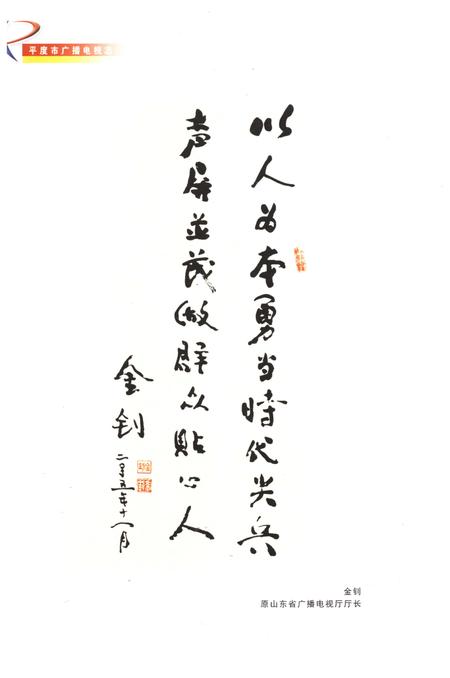 平度市广播电视志
以人为本勇当時代尖兵
声屏並茂做群众贴心人
金钊
二〇〇五年十一月
金钊
原山东省广播电视厅厅长